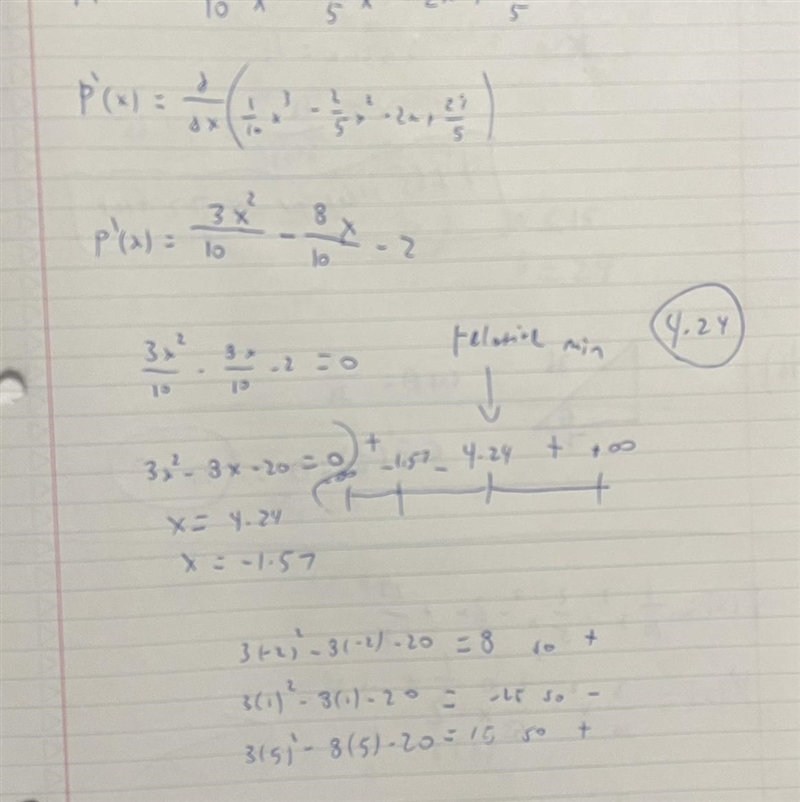 10 x 5 x 5
p'(x) = d/dx (1/10 x³ - 2/5 x² - 2x +
p'(x) = 3x²/10 - 8x/10 - 2
3x²/10 - 8x/10 - 2 = 0
relative min
4.24
3x² - 8x - 20 = 0
+ -1.57 - 4.24 + +∞
x = 4.24
x = -1.57
3(-2)² - 8(-2) - 20 = 8 so +
3(1)² - 8(1) - 20 = -25 so -
3(5)² - 8(5) - 20 = 15 so +